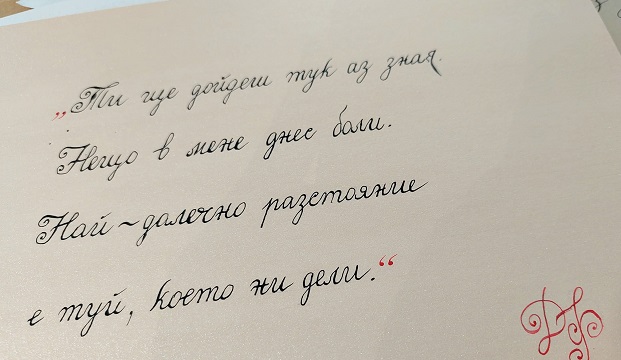 „Ти ще дойдеш тук аз зная.
Нещо в мене днес боли.
Най-далечно разстояние
е туй, което ни дели.“